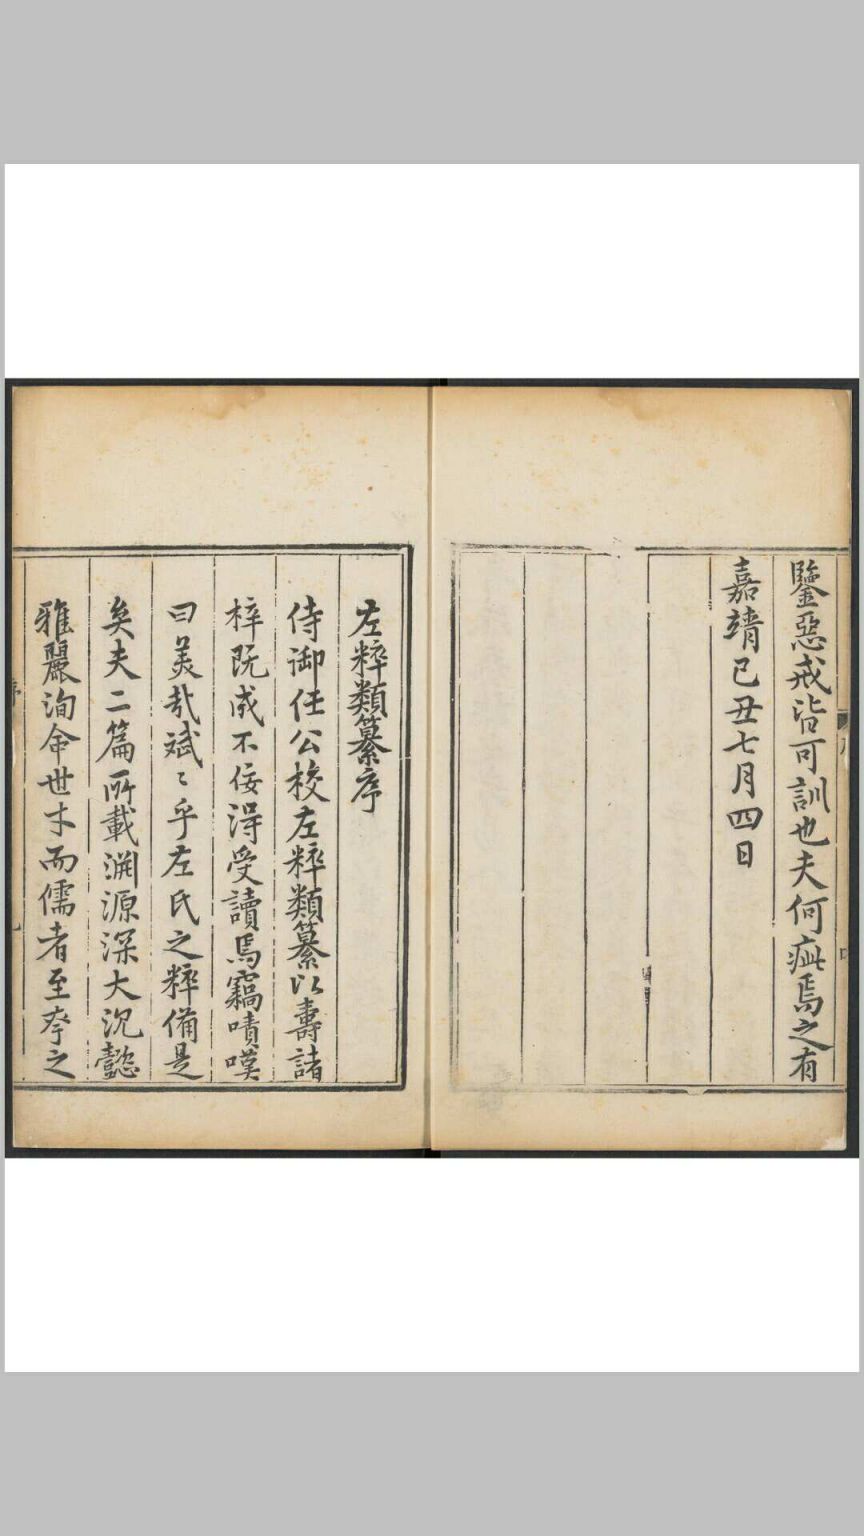 鑒惡戒皆可訓也夫何疵焉之有
嘉靖己丑七月四日
左粹類纂序
侍御任公校左粹類纂以壽諸
梓既成不佞得受讀焉竊嘖嘆
曰美哉斌〻乎左氏之粹備是
矣夫二篇所載淵源深大沉懿
雅麗洵命世才而儒者至夸之